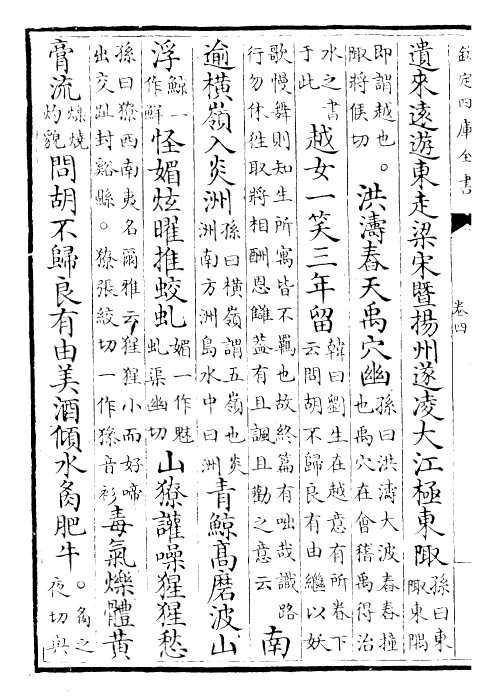 欽定四庫全書
卷四
遺來遠遊東走梁宋暨揚州遂凌大江極東陬孫曰東陬東隅
即謂越也。陬將侯切洪濤舂天禹穴幽孫曰洪濤大波舂舂撞也禹穴在會稽禹得治
水之書于此越女一笑三年留韓曰劉生在越意有所眷下云問胡不歸良有由繼以妖
歌慢舞則知生所寓皆不羈也故終篇有咄哉識路行勿休徃取將相酬恩讎葢有且諷且勸之意云南
逾橫嶺入炎洲孫曰橫嶺謂五嶺也炎洲南方洲島水中曰洲青鯨髙磨波山
浮鯨一作鮮怪媚炫曜推蛟虬媚一作魅虬渠幽切山獠讙噪猩猩愁
孫曰獠西南夷名爾雅云猩猩小而好啼出交趾封谿縣。獠張絞切一作音衫毒氣爍體黄
膏流爍燒灼貌問胡不歸良有由美酒傾水炙肥牛。炙之夜切與